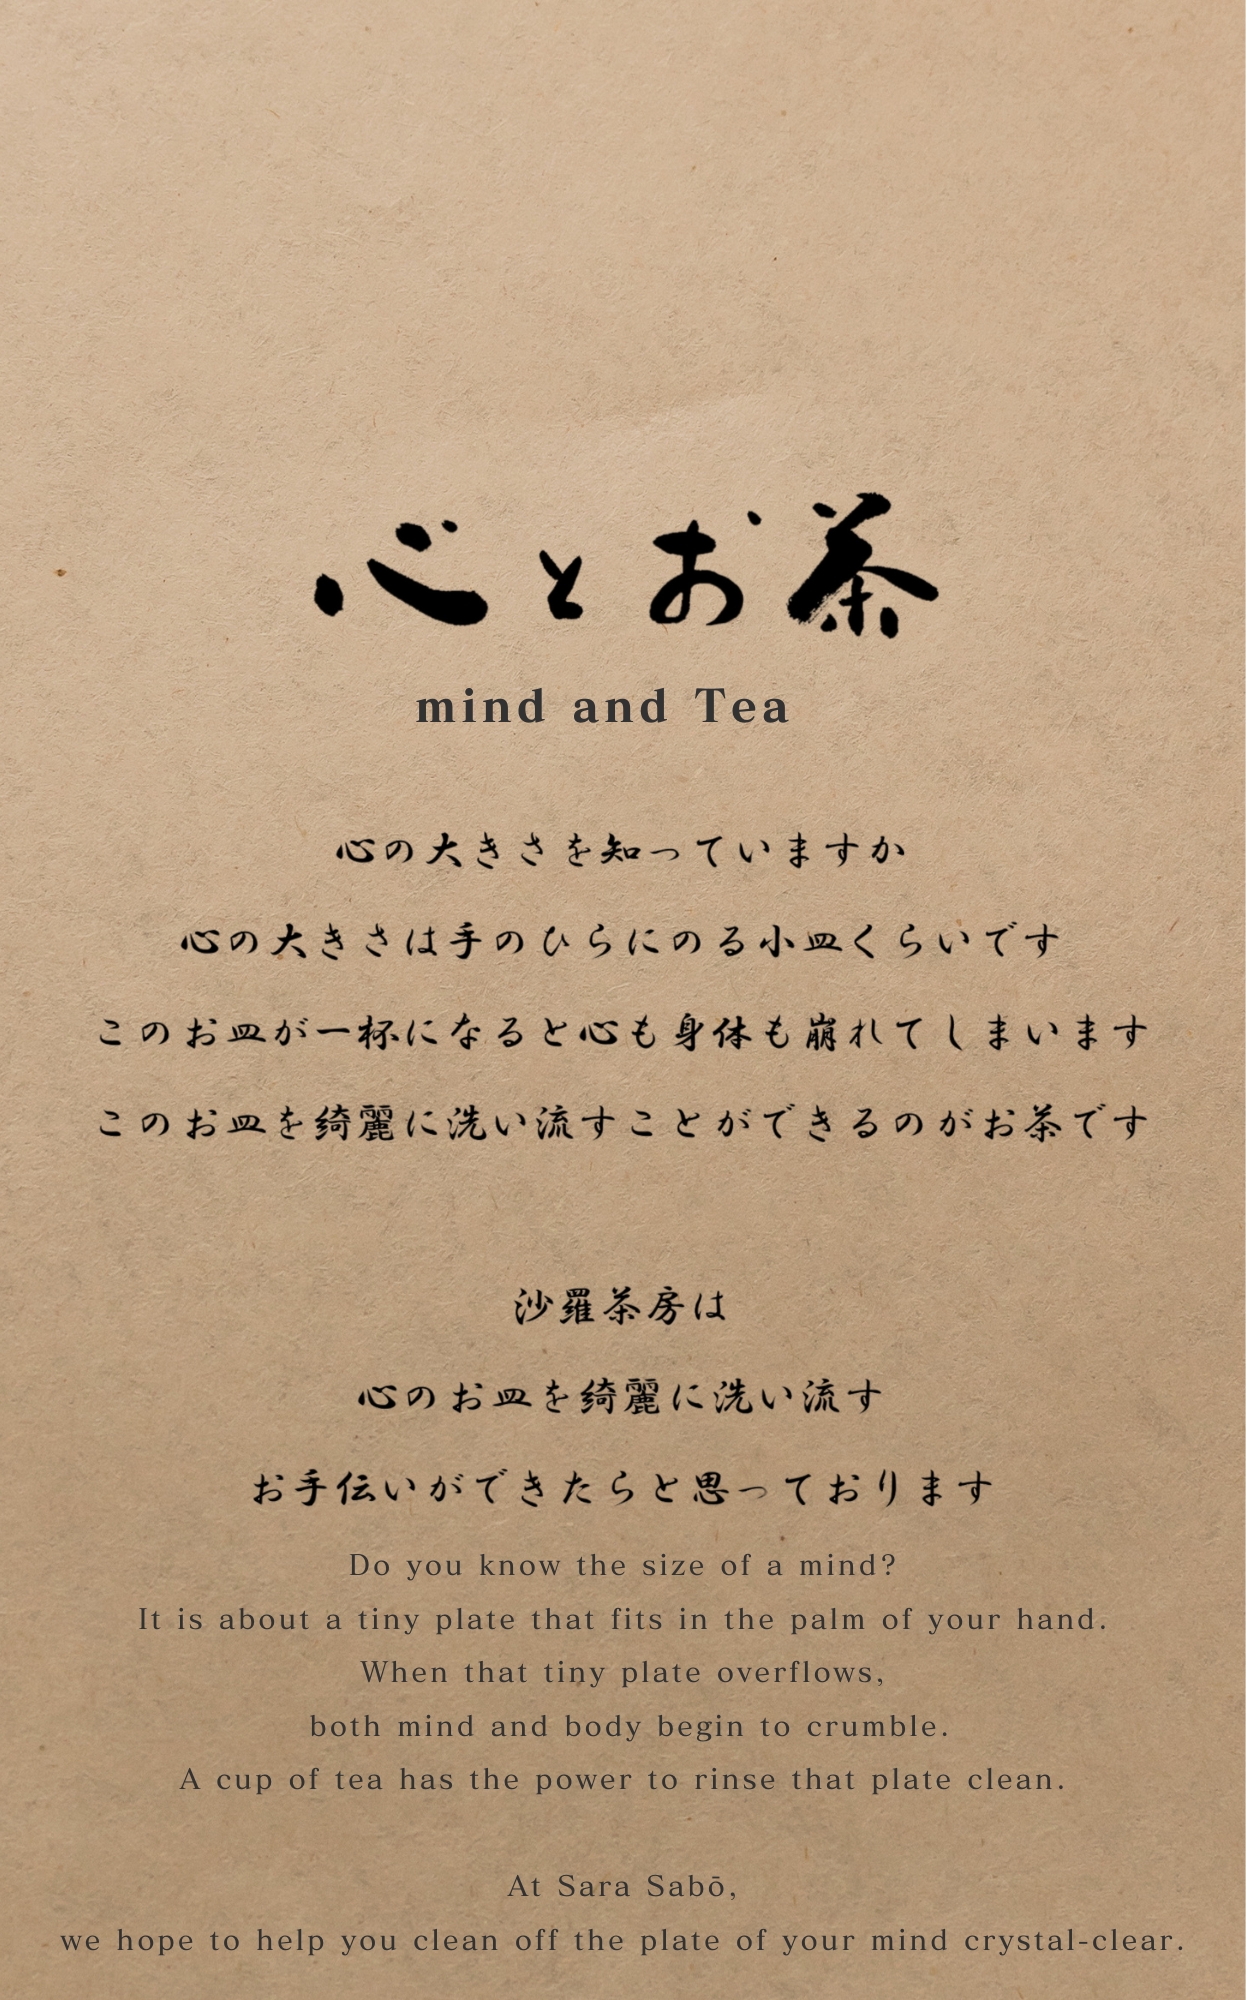 心とお茶
mind and Tea
心の大きさを知っていますか
心の大きさは手のひらにのる小皿くらいです
このお皿が一杯になると心も身体も崩れてしまいます
このお皿を綺麗に洗い流すことができるのがお茶です
沙羅茶房は
心のお皿を綺麗に洗い流す
お手伝いができたらと思っております
Do you know the size of a mind?
It is about a tiny plate that fits in the palm of your hand.
When that tiny plate overflows,
both mind and body begin to crumble.
A cup of tea has the power to rinse that plate clean.
At Sara Sabō,
we hope to help you clean off the plate of your mind crystal-clear.